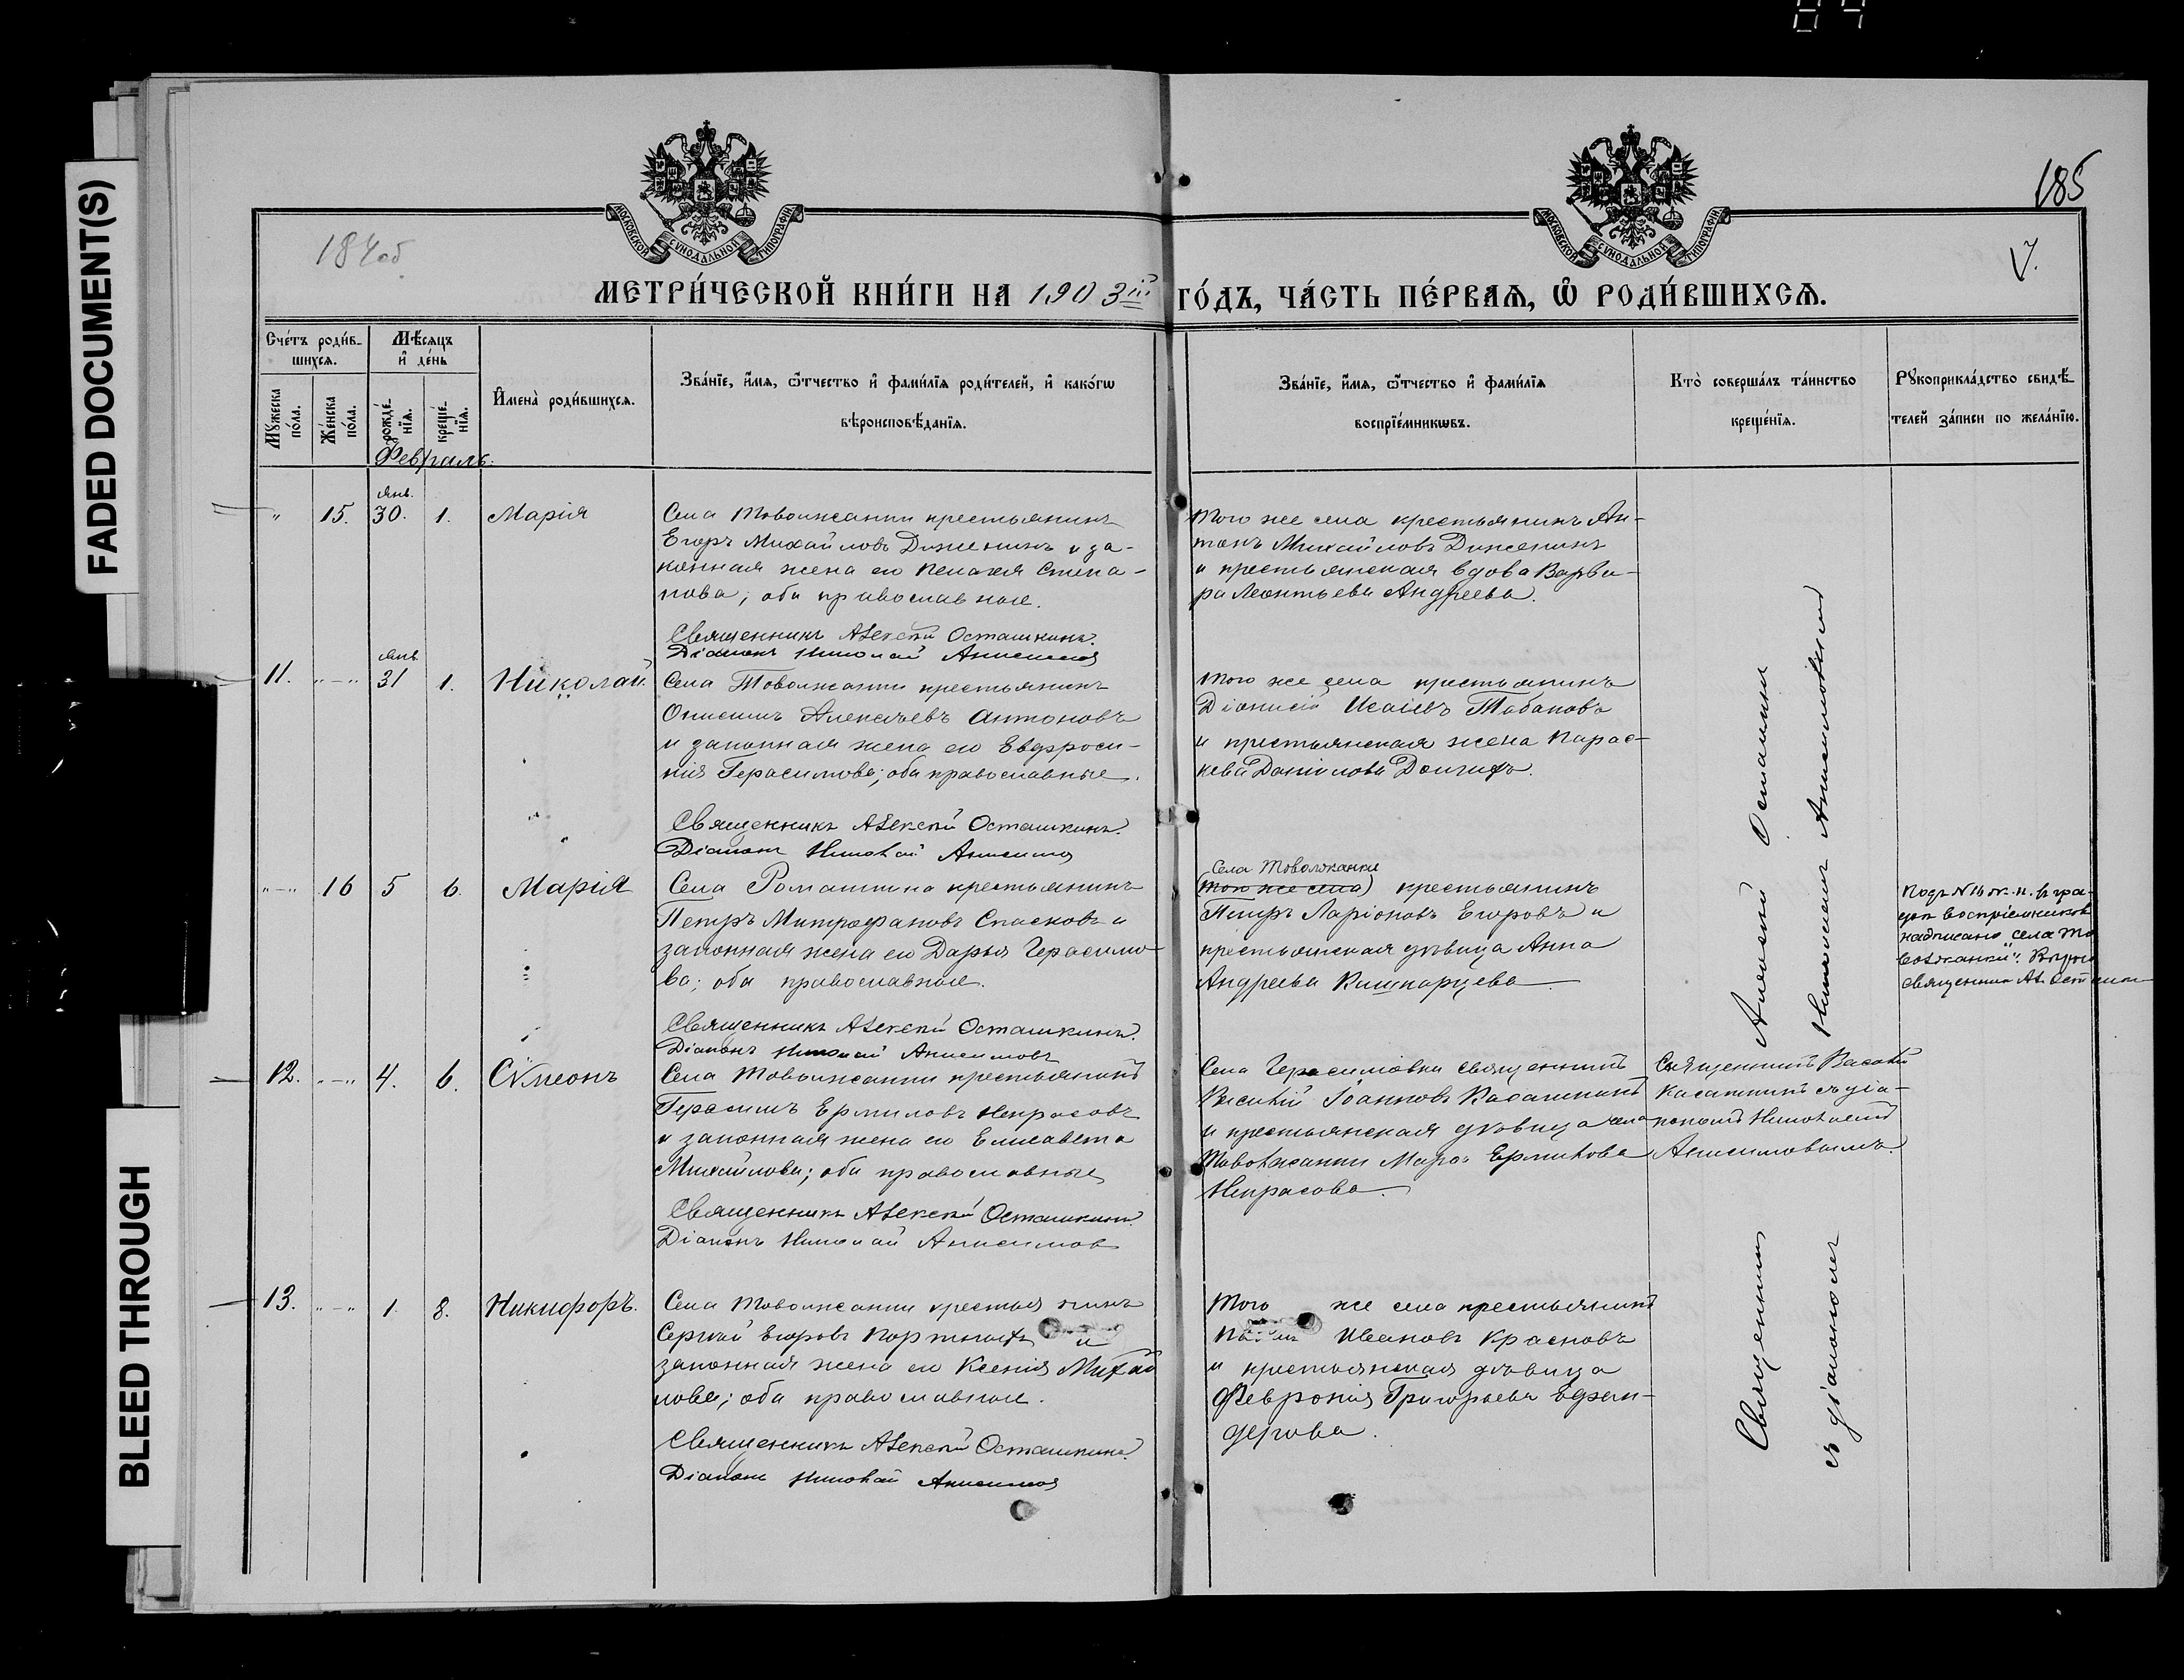 FADED DOCUMENT(S)
BLEED THROUGH
184об
185
V.
МОСКОВСКОЙ СѴНОДАЛЬНОЙ ТИПОГРАФІИ
МОСКОВСКОЙ СѴНОДАЛЬНОЙ ТИПОГРАФІИ
МЕТРИ́ЧЕСКОЙ КНИ́ГИ НА 1903й ГО́ДЪ, ЧА́СТЬ ПЕ́РВАѦ, Ѡ҆ РОДИ́ВШИХСѦ.
Сче́тъ роди́в-
шихсѧ.
Мꙋ́жеска по́ла.
Же́нска по́ла.
Мѣ́сѧцъ
и҆ де́нь
рожде́-
нїѧ.
креще́-
нїѧ.
И҆мена̀ роди́вшихсѧ.
Зва́нїе, и҆́мѧ, ѻ҆́тчество и҆ фами́лїѧ роди́телей, и҆ како́гѡ
вѣроисповѣ́данїѧ.
Зва́нїе, и҆́мѧ, ѻ҆́тчество и҆ фами́лїѧ
воспрїе́мникѡвъ.
Кто̀ соверша́лъ та́инство
креще́нїѧ.
Рꙋкоприкла́дство свидѣ́-
телей за́писи по жела́нїю.
Февраль.
" 15. Янв. 30. 1. Марія
Села Товолжанки крестьянинъ
Егоръ Михайловъ Долженинъ и за-
конная жена его Пелагея Степа-
нова; оба православные.
Священникъ Алексѣй Осташкинъ.
Діаконъ Николай Анисимов
Того же села крестьянинъ Ан-
тонъ Михайловъ Долженинъ
и крестьянская вдова Варва-
ра Леонтьева Андреева.
11. "—" Янв. 31 1. Николай.
Села Товолжанки крестьянинъ
Онисимъ Алексѣевъ Антоновъ
и законная жена его Евфроси-
нія Герасимова; оба православные.
Священникъ Алексѣй Осташкинъ.
Діаконъ Николай Анисимов
Того же села крестьянинъ
Діонисій Исаіевъ Табаковъ
и крестьянская жена Парас-
кева Даніилова Долгихъ.
"—" 16 5 6. Марія
Села Ромашкина крестьянинъ
Петръ Митрофановъ Спасковъ и
законная жена его Дарья Герасимо-
ва; оба православные.
Священникъ Алексѣй Осташкинъ.
Діаконъ Николай Анисимовъ
Села Товолжанки
(того же села) крестьянинъ
Петръ Ларіоновъ Егоровъ и
крестьянская дѣвица Анна
Андреева Кишкарцева
Подъ №16 ж. п. в гра-
фѣ воспріемников
надписано "села То
волжанки".
священник Ал.
12. "—" 4. 6. Сѵмеонъ
Села Товолжанки крестьянинъ
Герасимъ Ермиловъ Некрасовъ
и законная жена его Елисавета
Михайлова; оба православные
Священникъ Алексѣй Осташкинъ.
Діаконъ Николай Анисимов
Села Герасимовки священникъ
Василій Іоанновъ Касаткинъ
и крестьянская дѣвица села
Товолжанки Марѳа Ермилова
Некрасова.
Священникъ Василій
Касаткинъ съ діа-
кономъ Николаемъ
Анисимовымъ.
13. "—" 1. 8. Никифоръ.
Села Товолжанки крестьянинъ
Сергѣй Егоровъ и
законная жена его Ксенія Михай
лова; оба православные.
Священникъ Алексѣй Осташкинъ.
Діаконъ Николай Анисимов
Того же села крестьянинъ
Ивановъ Красновъ
и крестьянская дѣвица
Февронія Григорьева Ефан-
дерова.
Священникъ Алексѣй Осташкин
съ діакономъ Николаемъ Анисимовымъ